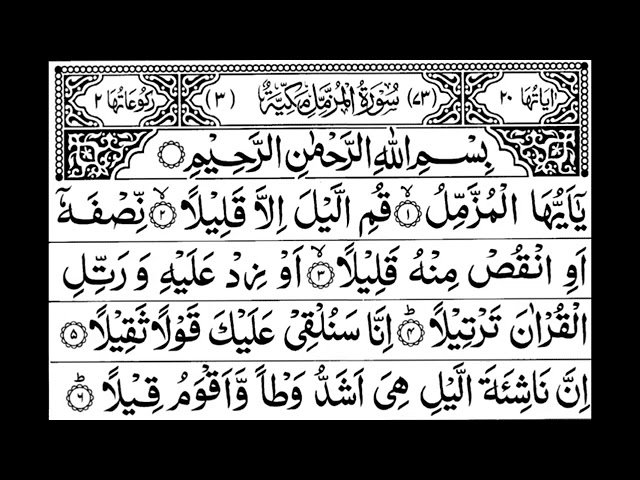 اٰيَاتُهَا ٢٠ (٧٣) سُوْرَةُ الْمُزَّمِّلِ مَكِّيَّةٌ (٣) رُكُوْعَاتُهَا ٢
بِسْمِ اللّٰهِ الرَّحْمٰنِ الرَّحِيْمِ
يٰۤاَيُّهَا الْمُزَّمِّلُ ۙ‏﴿۱﴾ قُمِ الَّيْلَ اِلَّا قَلِيْلًا ۙ‏﴿۲﴾ نِّصْفَهٗۤ
اَوِ انْقُصْ مِنْهُ قَلِيْلًا ۙ‏﴿۳﴾ اَوْ زِدْ عَلَيْهِ وَ رَتِّلِ
الْقُرْاٰنَ تَرْتِيْلًا ؕ‏﴿۴﴾ اِنَّا سَنُلْقِيْ عَلَيْكَ قَوْلًا ثَقِيْلًا ‏﴿۵﴾
اِنَّ نَاشِئَةَ الَّيْلِ هِيَ اَشَدُّ وَطْاً وَّاَقْوَمُ قِيْلًا ؕ‏﴿۶﴾